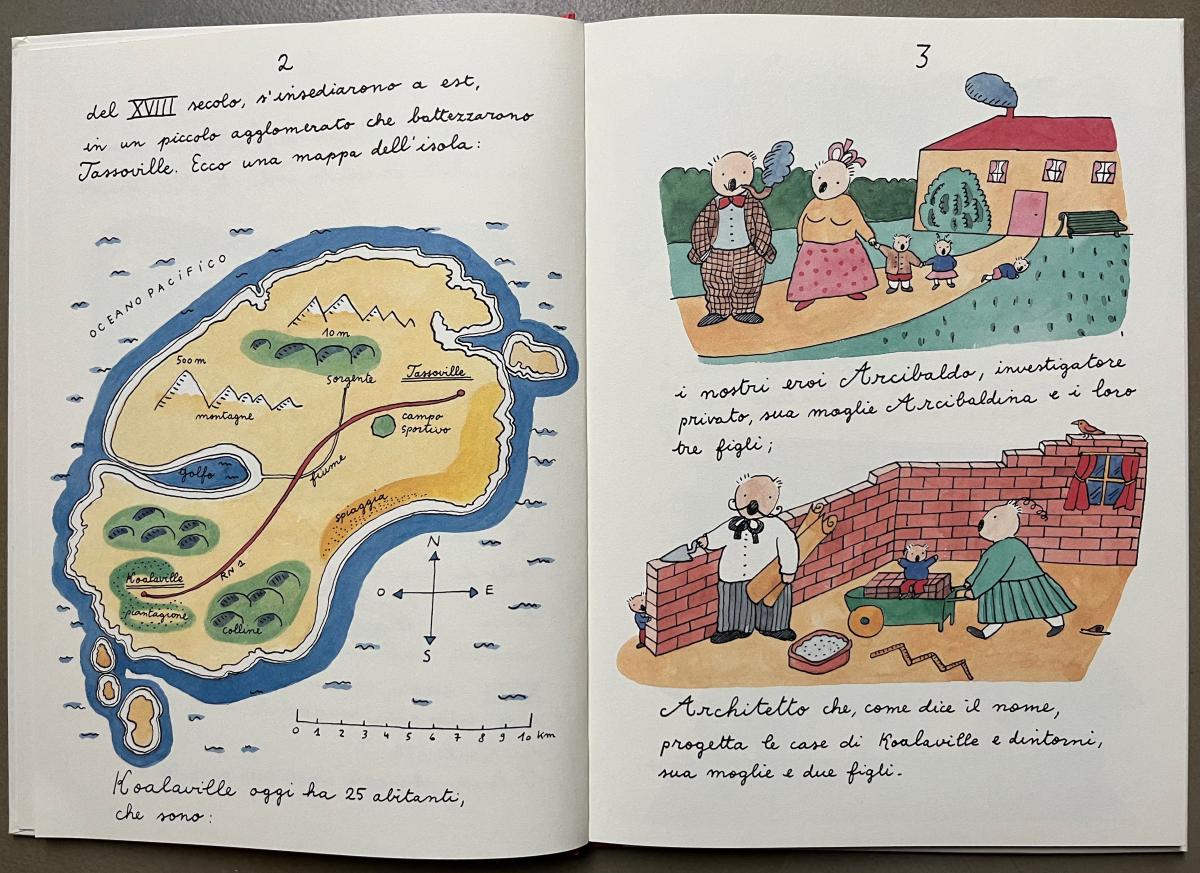 2
del XVIII secolo, s'insediarono a est,
in un piccolo agglomerato che battezzarono
Tassoville. Ecco una mappa dell'isola:
OCEANO PACÍFICO
10 m
500 m
montagne
sorgente
Tassoville
campo
sportivo
golfo
fiume
spiaggia
RN 1
Koalaville
piantagione
colline
N
O E
S
0 1 2 3 4 5 6 7 8 9 10 km
Koalaville oggi ha 25 abitanti,
che sono:
3
i nostri eroi Arcibaldo, investigatore
privato, sua moglie Arcibaldina e i loro
tre figli;
Architetto che, come dice il nome,
progetta le case di Koalaville e dintorni,
sua moglie e due figli.